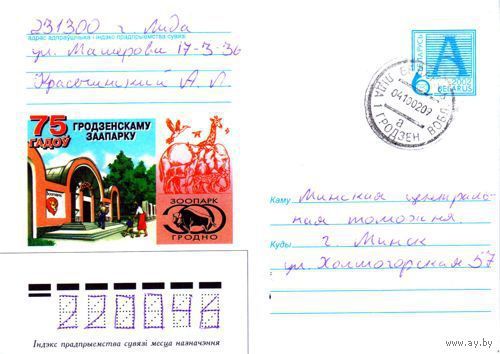 231300 г. Лида
адрас адпраўшчыка і індэкс прадпрыемства сувязі
ул. Машерова 17-3-36
Красочинский А. Л.
75 ГАДОЎ
ГРОДЗЕНСКАМУ ЗААПАРКУ
ЗООПАРК
ГРОДНО
БЕЛАРУСЬ
A
2002
BELARUS
ЛІДА
041002 09
а
1 ГРОДЗЕН. ВОБЛ.
Каму Минская централь-
ная таможня
Куды г. Минск
ул. Холмогорская 57
220046
Індэкс прадпрыемства сувязі месца назначэння
www.ay.by